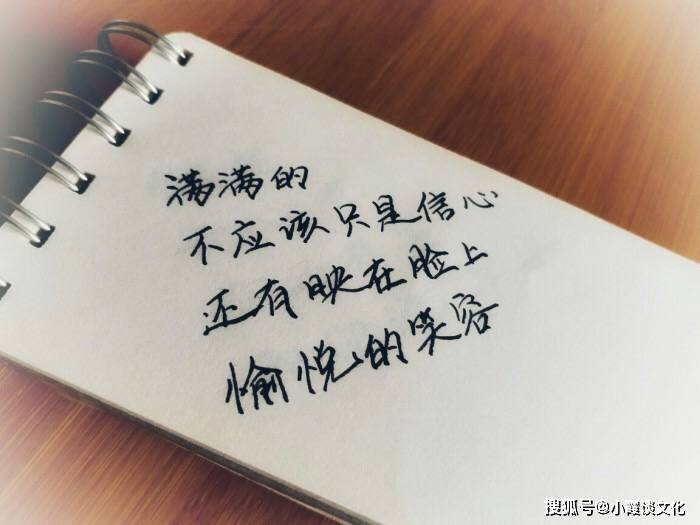 满满的
不应该只是信心
还有映在脸上
愉悦的笑容
搜狐号@小霞谈文化